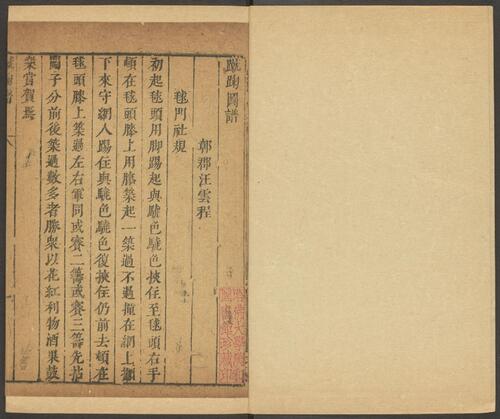 蹴踘圖譜
鄣郡汪雲程
毬門社規
初起毬頭用脚踢起與驍色驍色挾住至毬頭右手
頓在毬頭膝上用膝築起一築過不過撞在網上攧
下來守網人踢住與驍色驍色復挾住仍前去頓在
毬頭膝上築過左右軍同或賽二籌或賽三籌先拈
鬮子分前後築過數多者勝衆以花紅利物酒果鼓
樂賞賀焉